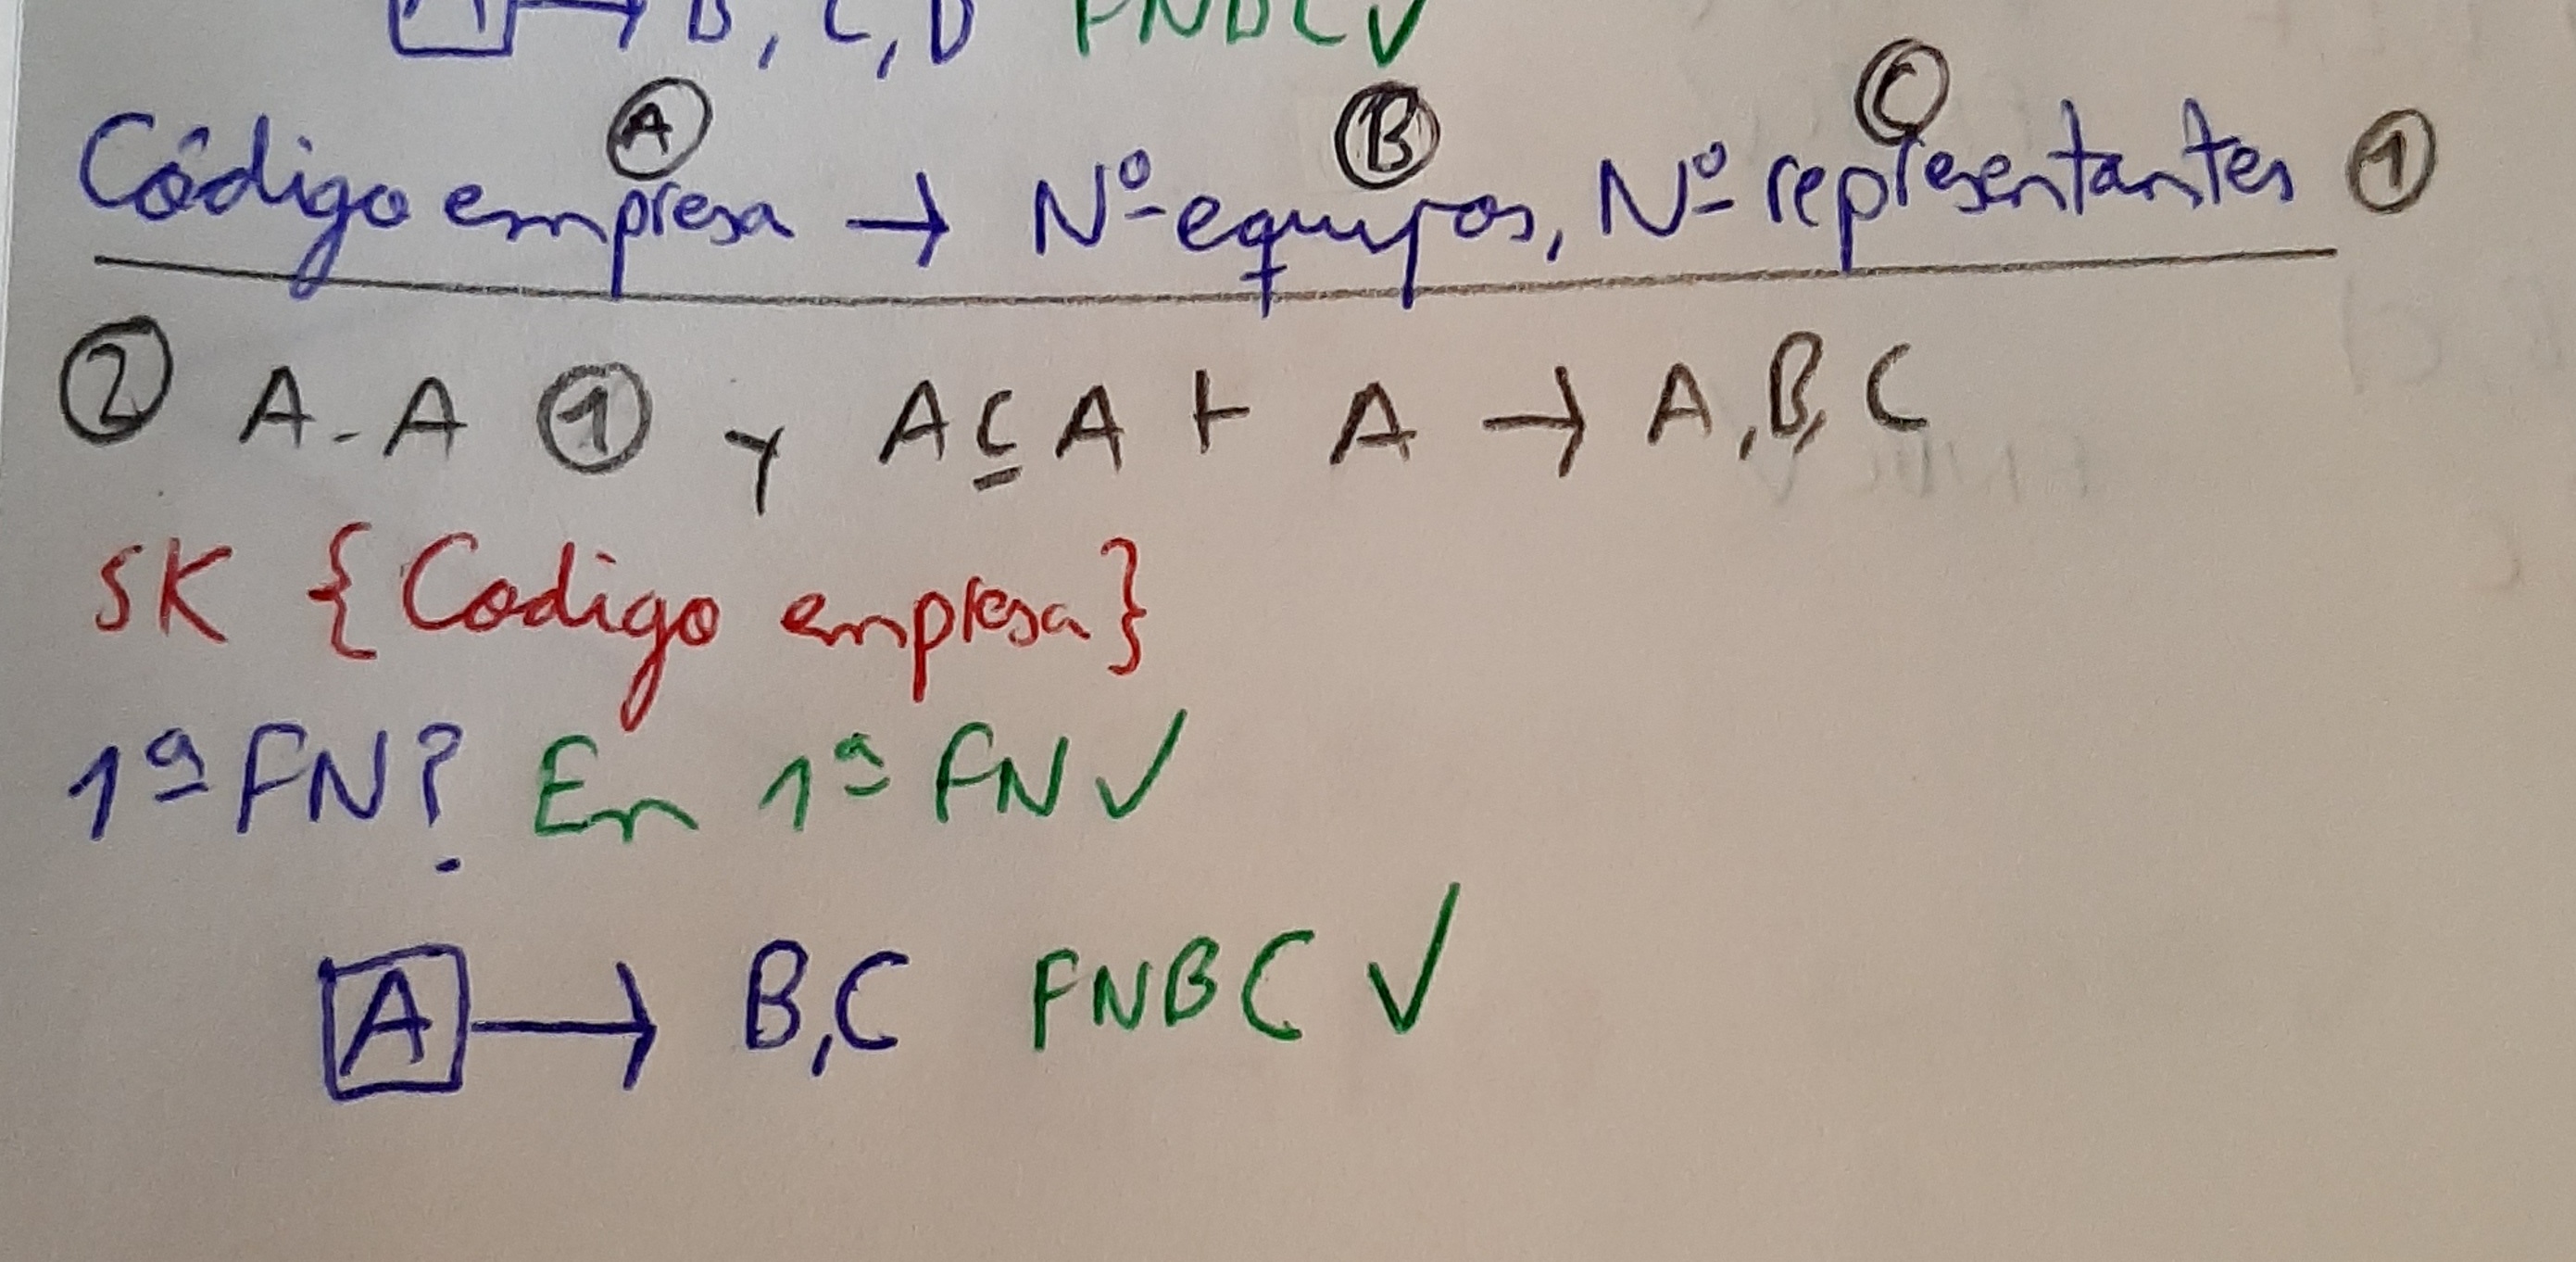 A → B, C, D FNBC ✓
A B C
Código empresa → Nº equipos, Nº representantes 1
2 A-A 1 y A ⊆ A + A → A, B, C
SK {Codigo empresa}
1ª FN? En 1ª FN ✓
A → B, C FNBC ✓